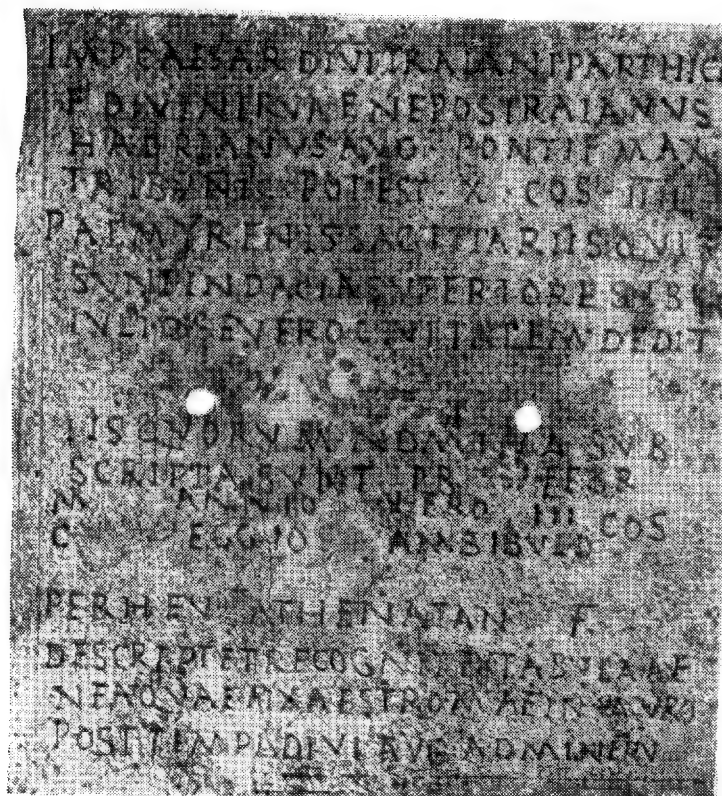 IMP CAESAR DIVI TRAIANI PARTHIC
F DIVI NERVAE NEPOS TRAIANVS
HADRIANVS AVG PONTIF MAX
TRIBVNIC POTEST X COS III
PALMYRENIS SAGITTARIIS QVI
SVNT IN DACIA SVPERIORE SVB
IVLIO SEVERO CIVITATEM DEDIT
IIS QVORVM NOMINA SVB
SCRIPTA SVNT PR FEBR
M ANNIO VERO III
C EGGIO AMBIBVLO COS
PERHEV ATHENATAN F
DESCRIPT ET RECOGNIT EX TABVLA AE
NEA QVAE FIXA EST ROMAE IN MVRO
POST TEMPL DIVI AVG AD MINERV